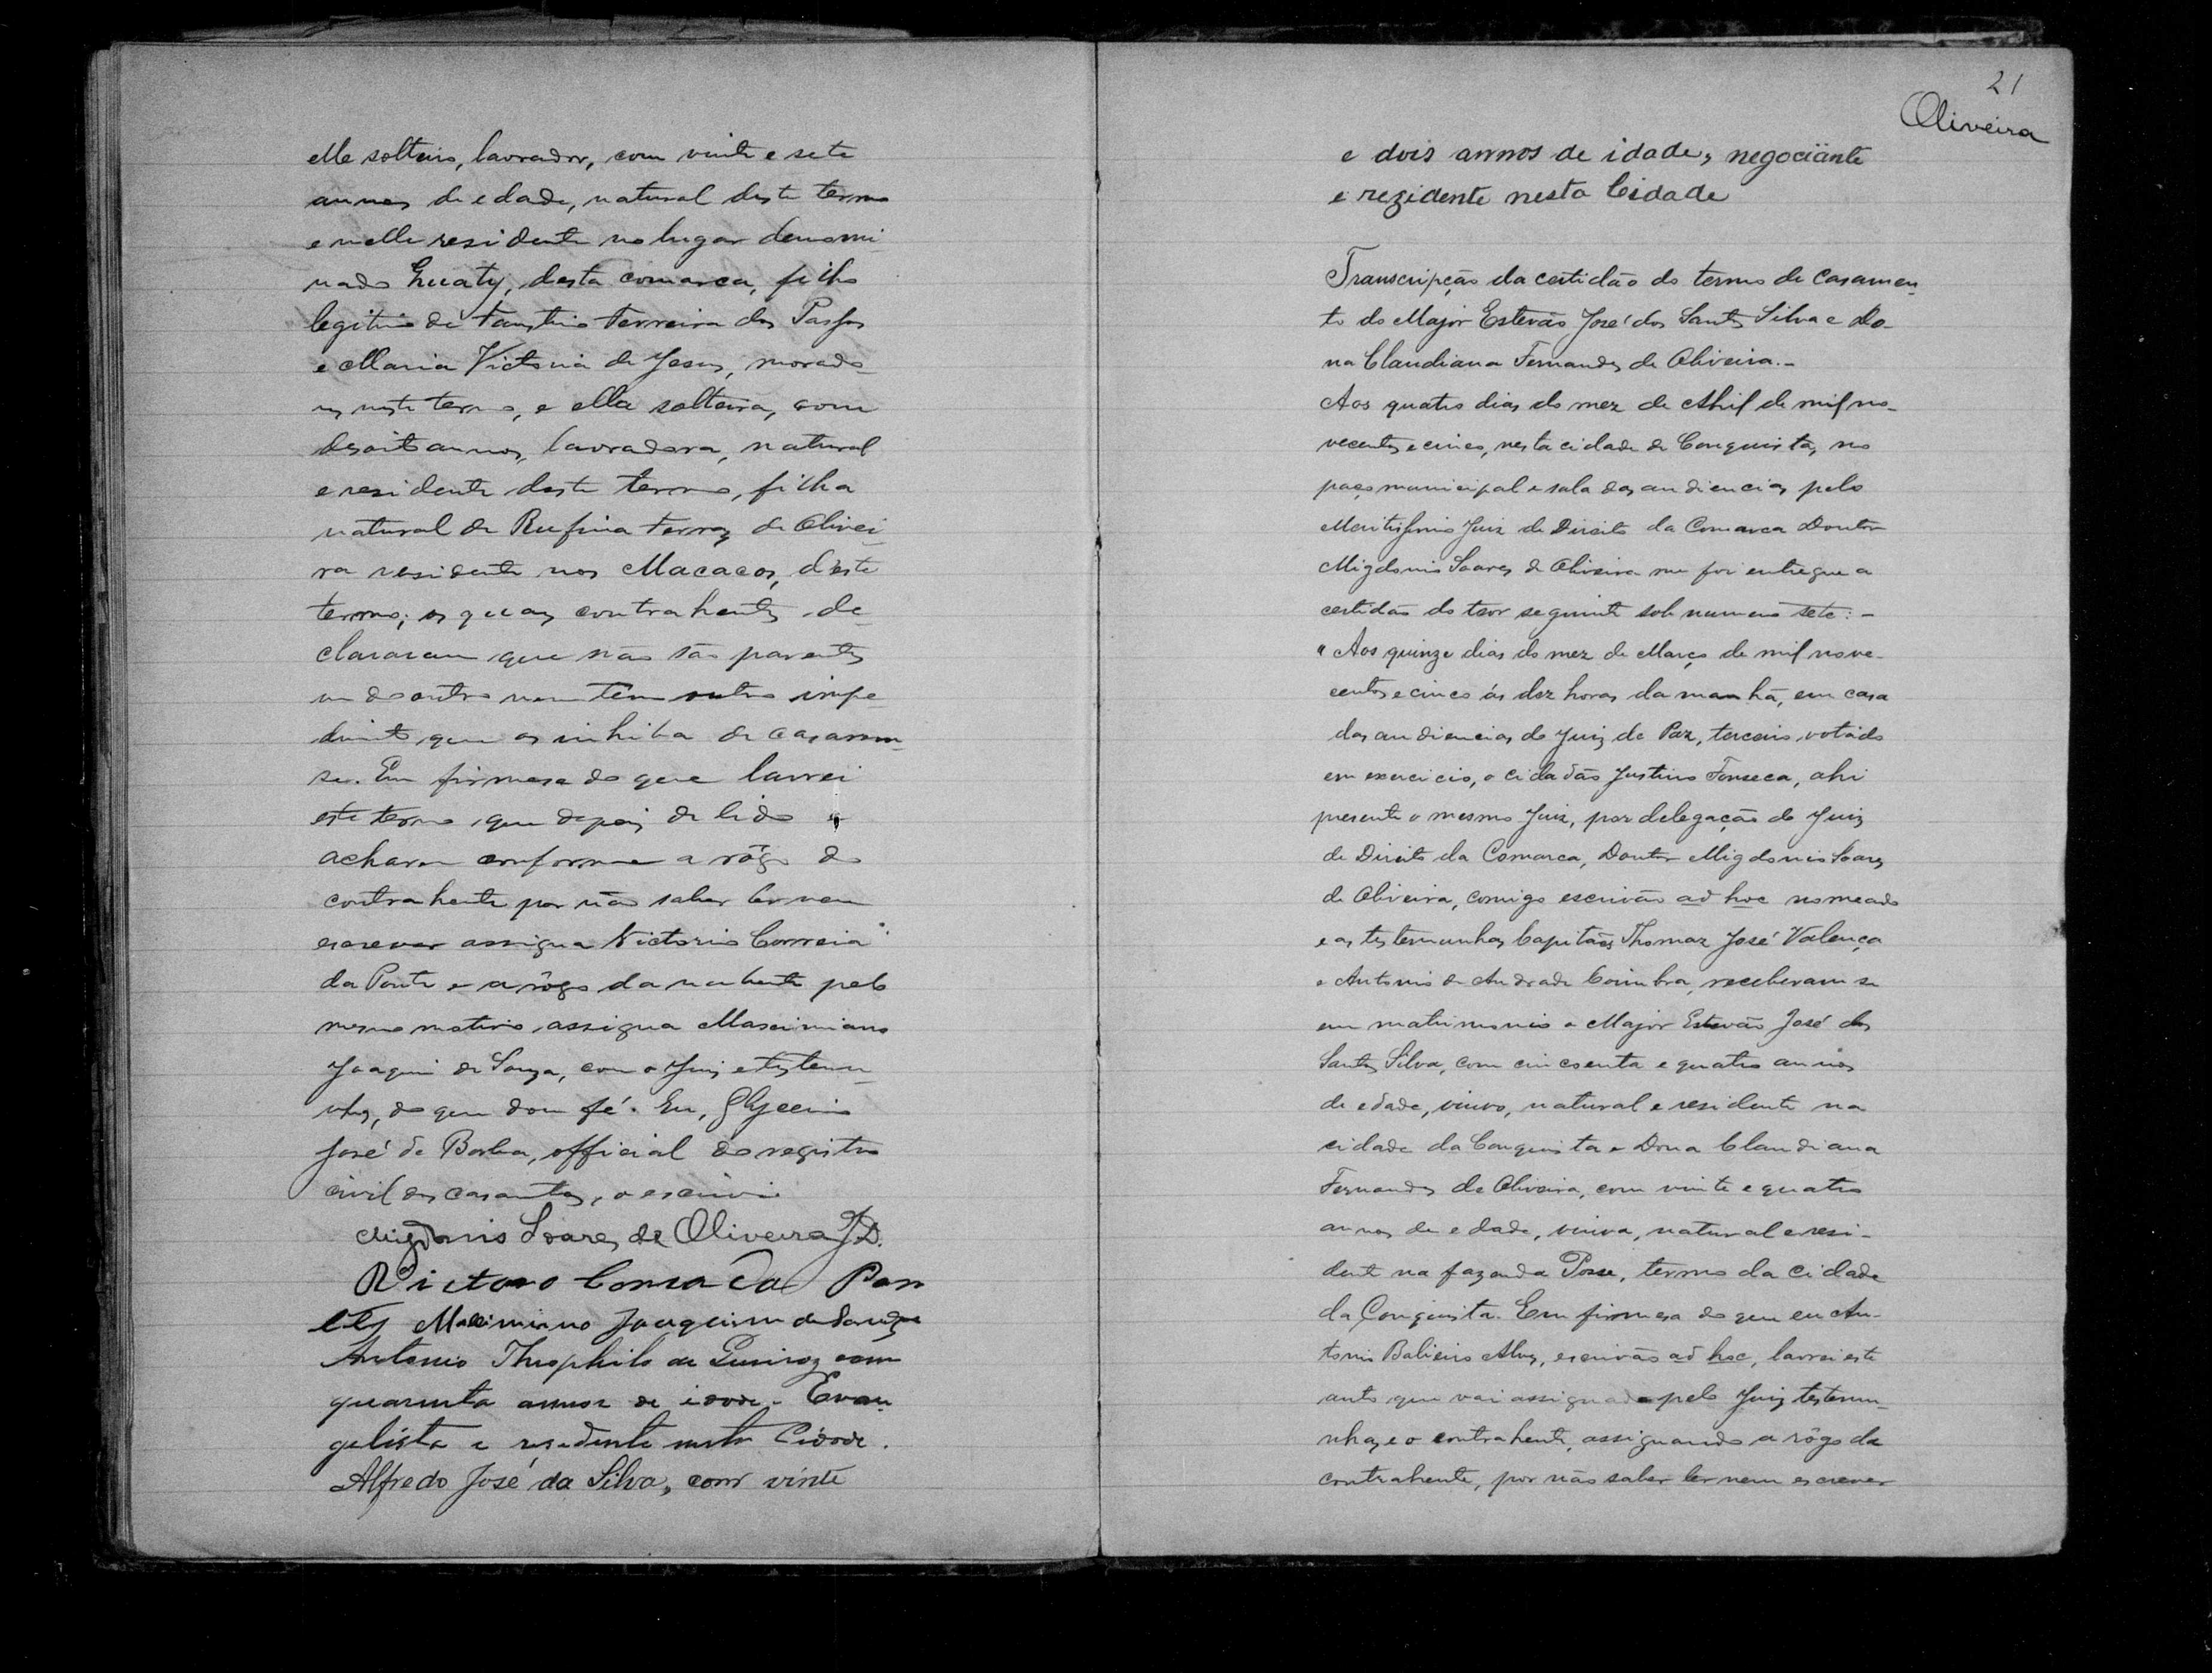 elle solteiro, lavrador, com vinte e sete
annos de edade, natural deste termo
e nelle residente no lugar denomi
nado Guaty, desta comarca, filho
legitimo de Faustino Ferreira dos Passos
e Maria Victoria de Jesus, morado
res neste termo, e ella solteira, com
desoito annos, lavradora, natural
e residente deste termo, filha
natural de Rufina Ferraz de Olivei
ra residente nos Macacos, d'este
termo; os quaes contrahentes de
clararam que não são parentes
um do outro nem têm outro impe
dimento que os inhiba de casarem
se. Em firmesa do que lavrei
este termo, que depois de lido e
acharem conforme a rôgo do
contrahente por não saber ler nem
escrever assigna Victorio Correia
da Ponte e a rôgo da nubente pelo
mesmo motivo, assigna Maximiano
Joaquim de Souza, com o Juiz e testemu
nhas, do que dou fé. Eu, Glycerio
José de Borba, official do registro
civil dos casamentos, o escrevi
Migdonio Soares de Oliveira J.D.
Victoro Correa da Pon
Maximiano Joaquim de Souza
Antonio Theophilo de Queiroz com
quarenta annos de idade. Evan
gelista e residente nesta Cidade.
Alfredo José da Silva, com vinte
21
Oliveira
e dois annos de idade, negociante
e rezidente nesta Cidade
Transcripção da certidão do termo de casamen
to do Major Estevão José dos Santos Silva e do-
na Claudiana Fernandes de Oliveira.-
Aos quatro dias do mez de Abril de mil no-
vecentos e cinco, nesta cidade de Conquista, no
paço municipal e sala das audiencias pelo
Meritissimo Juiz de Direito da Comarca Doutor
Migdonio Soares de Oliveira me foi entregue a
certidão do teor seguinte sob numero sete: -
"Aos quinze dias do mez de Março de mil nove-
centos e cinco ás dez horas da manhã, em casa
das audiencias do Juiz de Paz, terceiro votado
em exercicio, o cidadão Justino Fonseca, ahi
presente o mesmo Juiz, por delegação do Juiz
de Direito da Comarca, Doutor Migdonio Soares
de Oliveira, comigo escrivão ad hoc nomeado
e as testemunhas Capitães Thomaz José Valença
e Antonio de Andrade Coimbra, receberam se
em matrimonio o Major Estevão José dos
Santos Silva, com cincoenta e quatro annos
de edade, viuvo, natural e residente na
cidade da Conquista e Dona Claudiana
Fernandes de Oliveira, com vinte e quatro
annos de edade, viuva, natural e resi-
dente na fazenda Posse, termo da cidade
da Conquista. Em firmesa do que eu An-
tonio Balieiro Alves, escrivão ad hoc, lavrei este
auto que vai assignado pelo Juiz, testemu-
nhas, e o contrahente, assignando a rôgo da
contrahente, por não saber ler nem escrever